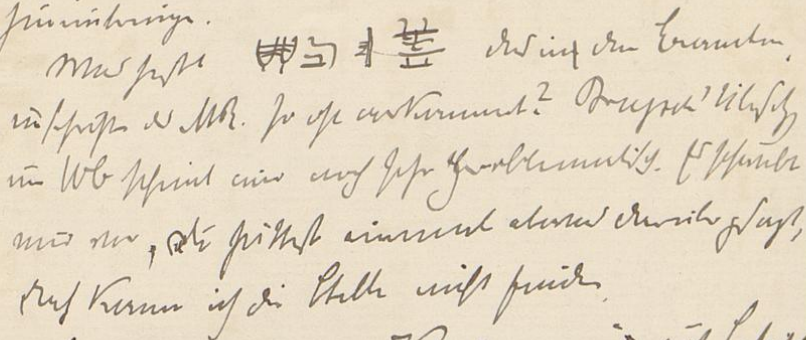 Was heißt das in den Beamten
inschriften des MR. so oft vorkommt? Brugsch'
im Wb scheint mir noch sehr problematisch. Es schwebt
mir vor, Du hättest einmal etwas darüber gesagt,
doch kann ich die Stelle nicht finden.